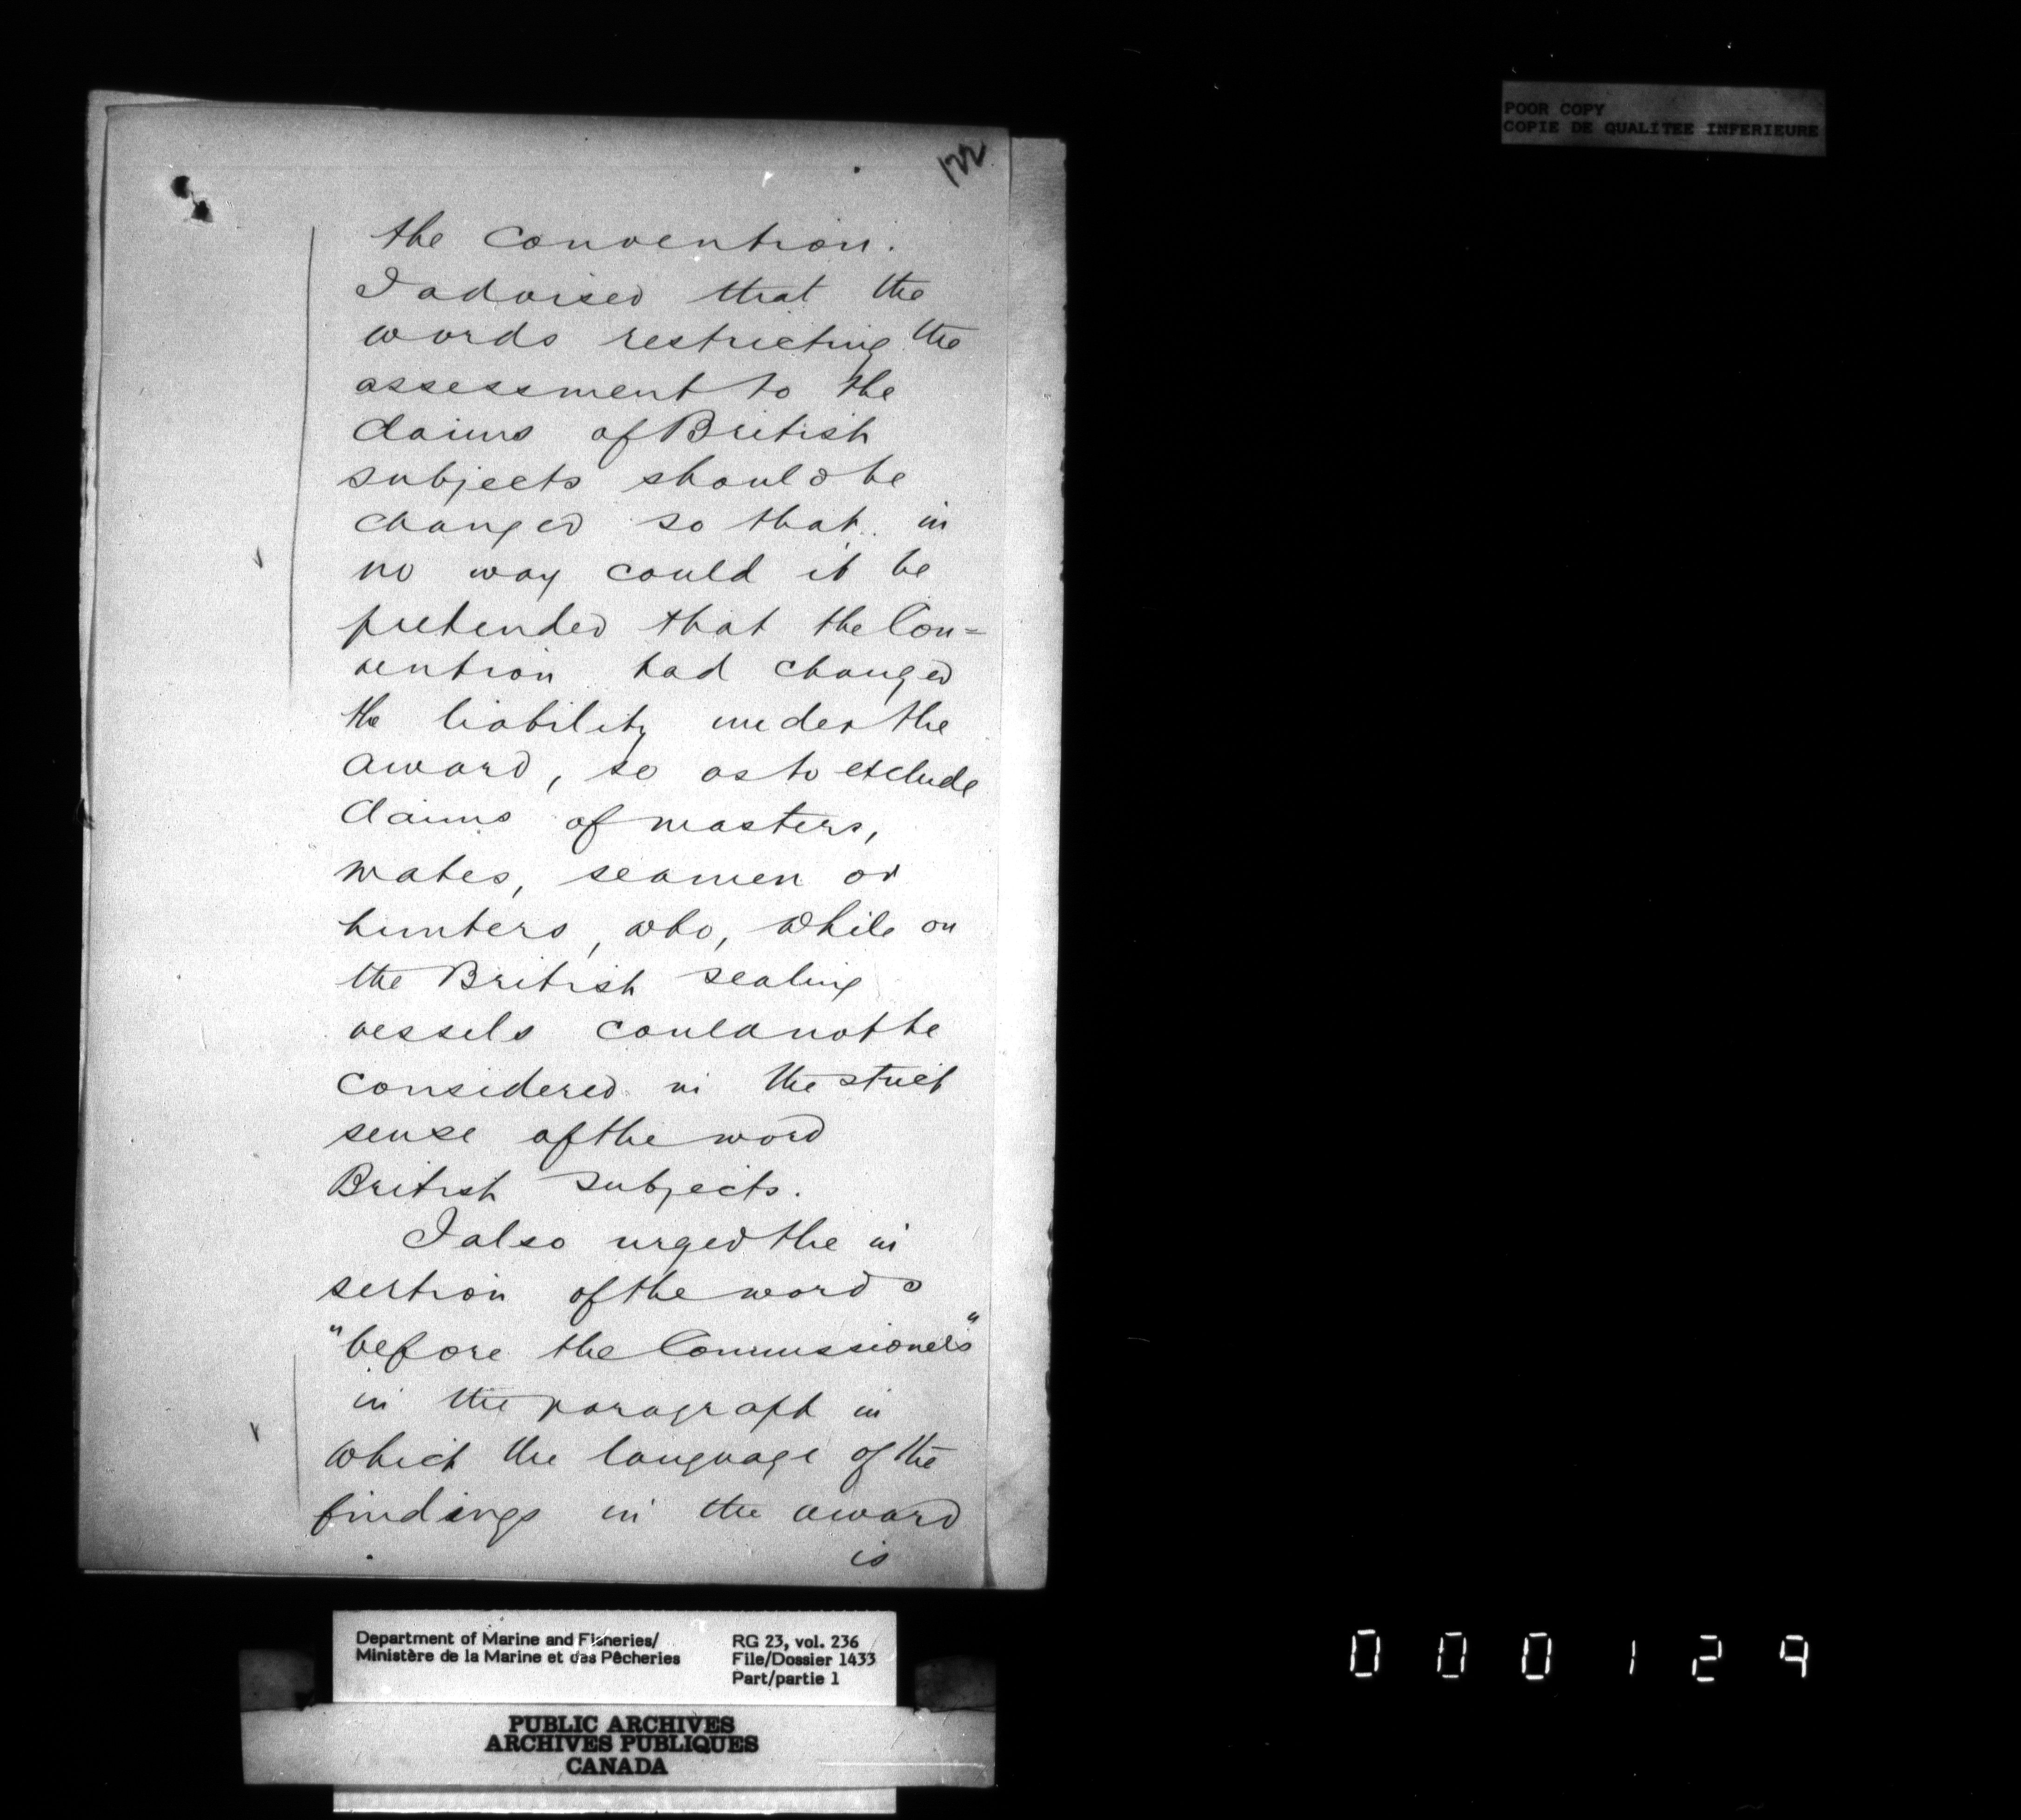 POOR COPY
COPIE DE QUALITEE INFERIEURE
122
the convention.
I advised that the
words restricting the
assessment to the
claims of British
subjects should be
changed so that in
no way could it be
pretended that the Con=
vention had changed
the liability under the
award, so as to exclude
claims of masters,
mates, seamen or
hunters, who, while on
the British sealing
vessels could not be
considered in the strict
sense of the word
British subjects.
I also urged the in
sertion of the words
"before the Commissioners"
in the paragraph in
which the language of the
findings in the award
is
Department of Marine and Fisheries/
Ministère de la Marine et des Pêcheries
RG 23, vol. 236
File/Dossier 1433
Part/partie 1
PUBLIC ARCHIVES
ARCHIVES PUBLIQUES
CANADA
000129